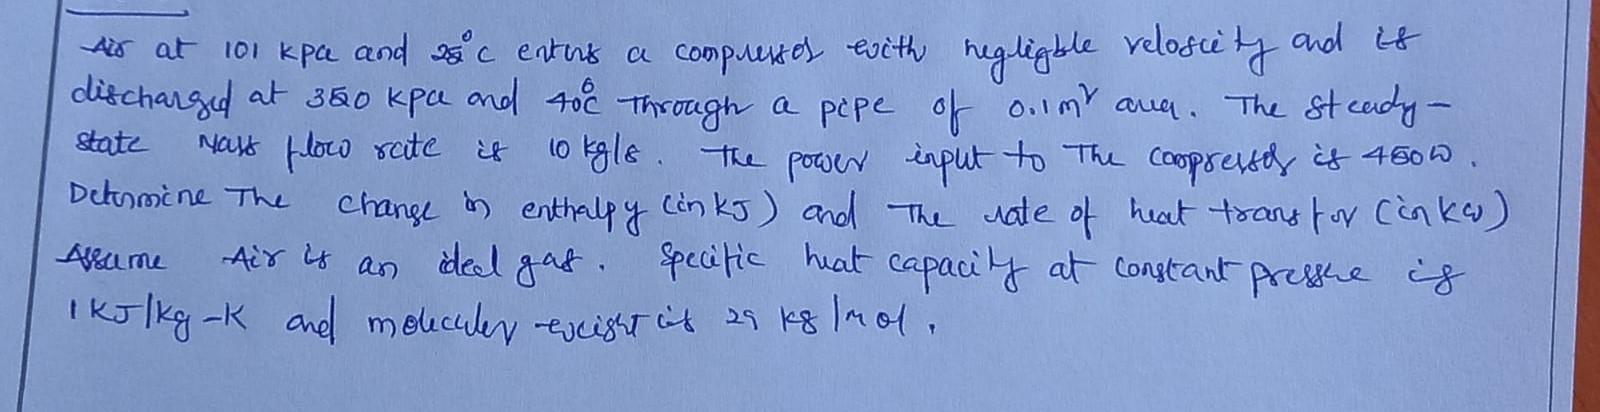 Air at 101 kpa and 25°c enters a compressor with negligible veloscity and is
discharged at 350 kpa and 40°c Through a pipe of 0.1 m² area. The steady-
state Mass flow rate is 10 kg/s. The power input to The compressor is 450 W.
Determine The change in enthalpy (in kJ) and The rate of heat transfor (in kW)
Assume Air is an ideal gas. Specific heat capacity at constant pressue is
1 KJ/kg-K and moleculer weight is 29 kg/mol.